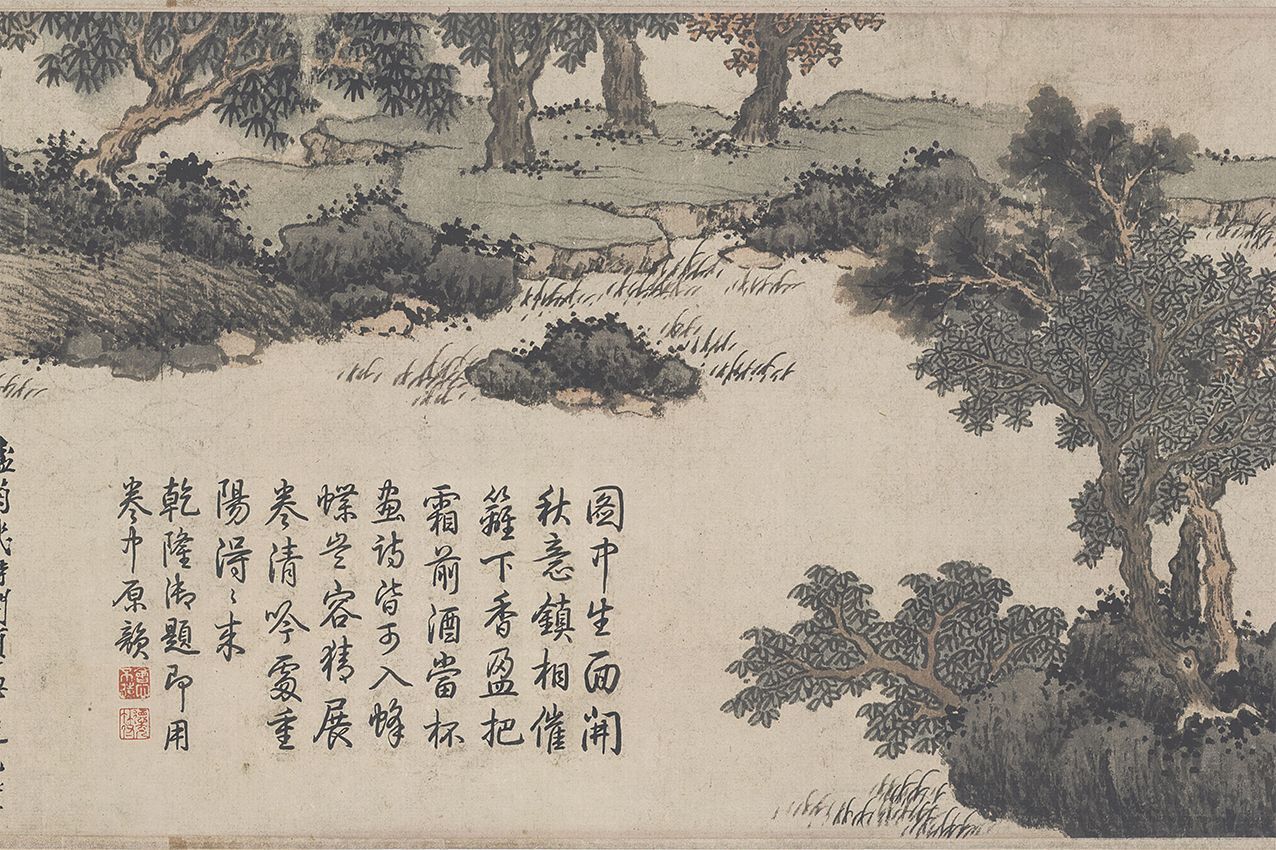 圖中生面開
秋意鎮相催
籬下香盈把
霜前酒當杯
畫詩皆可入蜂
蝶豈容猜展
卷清吟處重
陽得〻來
乾隆御題即用
卷中原韻